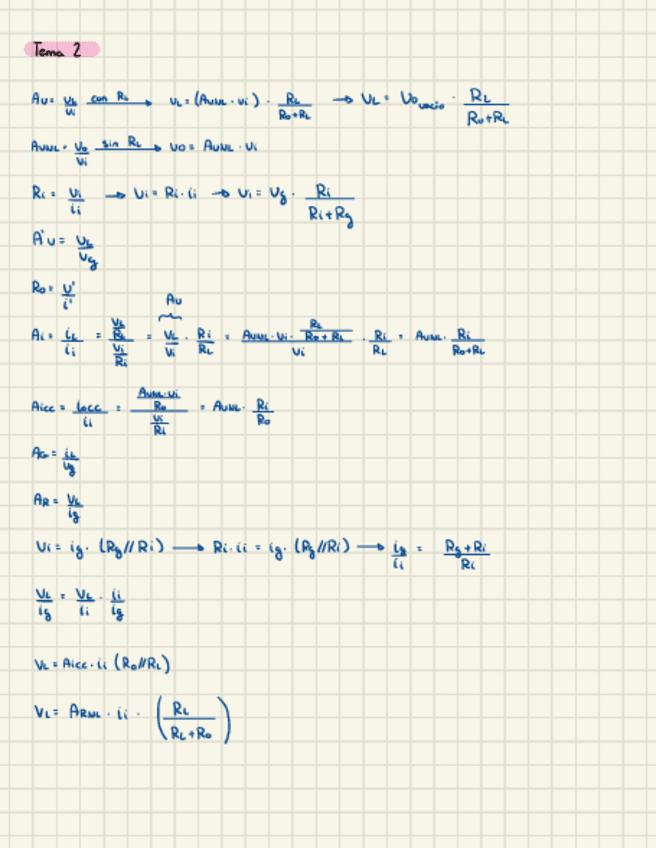 Tema 2
Av = vL/vi con RL → vL = (AvNL · vi) · RL/(Ro+RL) → vL = vo vacio · RL/(Ro+RL)
AvNL = vo/vi sin RL → vo = AvNL · vi
Ri = vi/ii → vi = Ri · ii → vi = vg · Ri/(Ri+Rg)
A'v = vL/vg
Ro = v'/i'
Av
Ai = iL/ii = (vL/RL)/(vi/Ri) = vL/vi · Ri/RL = (AvNL · vi · RL/(Ro+RL))/vi · Ri/RL = AvNL · Ri/(Ro+RL)
Aicc = iocc/ii = (AvNL·vi/Ro)/(vi/Ri) = AvNL · Ri/Ro
AG = iL/vg
AR = vL/ig
vi = ig · (Rg//Ri) → Ri · ii = ig · (Rg//Ri) → ig/ii = (Rg+Ri)/Ri
vL/ig = vL/ii · ii/ig
vL = Aicc · ii (Ro//RL)
vL = ARNL · ii · (RL/(RL+Ro))